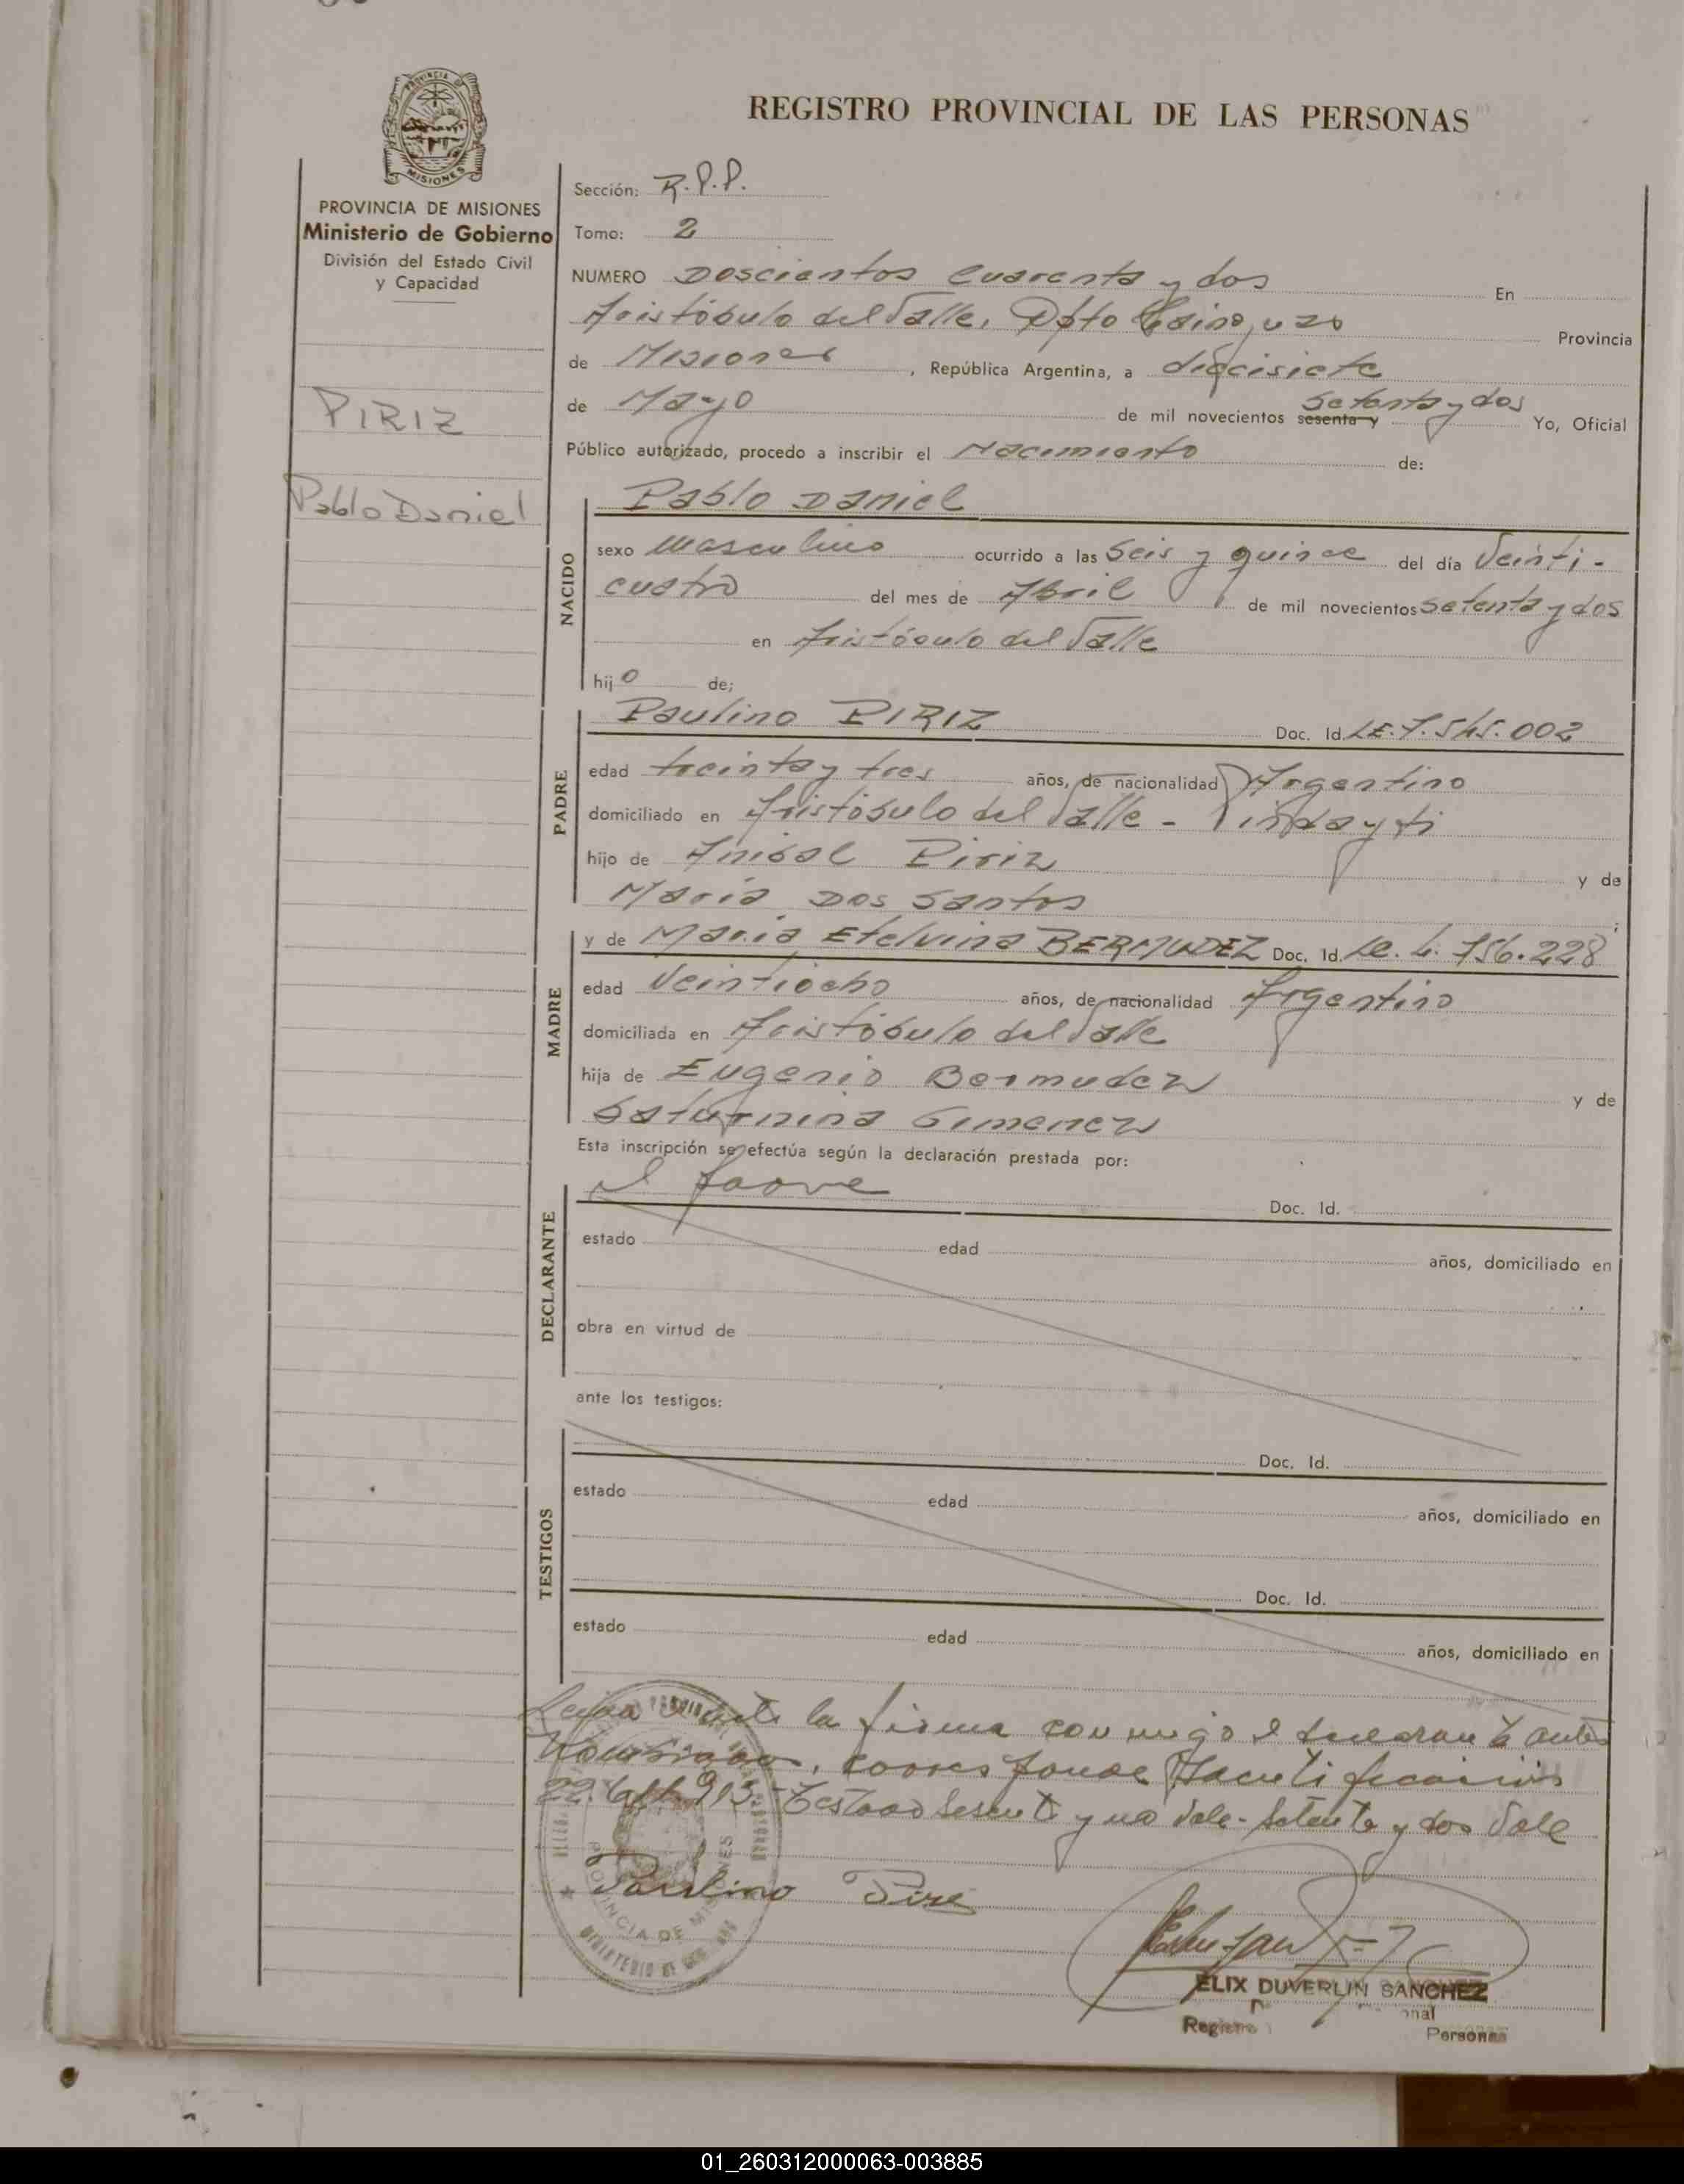 REGISTRO PROVINCIAL DE LAS PERSONAS
PROVINCIA DE
MISIONES
PROVINCIA DE MISIONES
Ministerio de Gobierno
División del Estado Civil
y Capacidad
PIRIZ
Pablo Daniel
Sección: R.P.P.
Tomo: 2
NUMERO Doscientos cuarenta y dos En
Aristóbulo del Valle, Dpto Cainguas Provincia
de Misiones, República Argentina, a diecisiete
de Mayo de mil novecientos sesenta y setenta y dos Yo, Oficial
Público autorizado, procedo a inscribir el Nacimiento de:
NACIDO
Pablo Daniel
sexo masculino ocurrido a las seis y quince del día Veinti-
cuatro del mes de Abril de mil novecientos setenta y dos
en Aristóbulo del Valle
hijo de;
PADRE
Paulino PIRIZ Doc. Id. LE. 7.545.002
edad treinta y tres años, de nacionalidad Argentino
domiciliado en Aristóbulo del Valle - Pindayti
hijo de Anibal Piriz y de
María Dos Santos
MADRE
y de María Etelvina BERMUDEZ Doc. Id. LC. 4.756.228
edad Veintiocho años, de nacionalidad Argentina
domiciliada en Aristóbulo del Valle
hija de Eugenio Bermudez y de
Saturnina Gimenez
Esta inscripción se efectúa según la declaración prestada por:
DECLARANTE
el padre Doc. Id.
estado edad años, domiciliado en
obra en virtud de
ante los testigos:
TESTIGOS
Doc. Id.
estado edad años, domiciliado en
Doc. Id.
estado edad años, domiciliado en
Leida la firma conmigo el antes
Nombrado, corresponde
22. 913 - Testado sesenta y no vale - setenta y dos Vale
Paulino Piriz
PROVINCIA DE MISIONES
MINISTERIO DE
ELIX DUVERLIN SANCHEZ
Registro
Personas
01_260312000063-003885